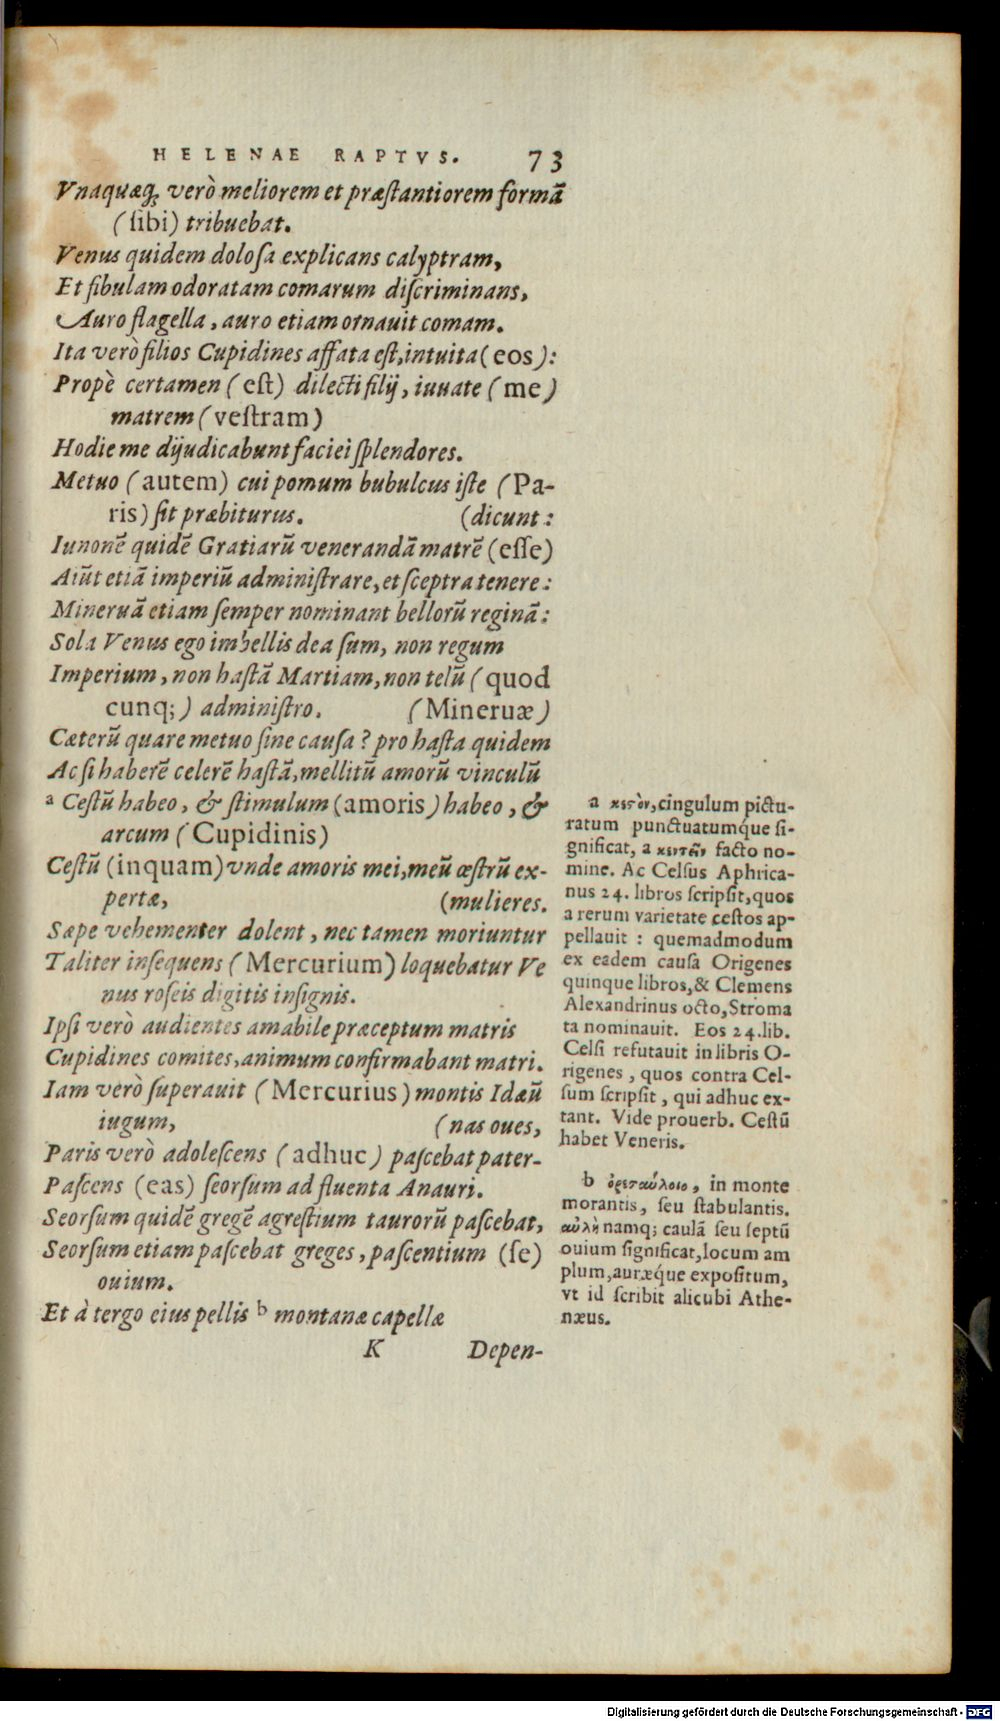 HELENAE RAPTVS. 73
Vnaquæq; verò meliorem et præſtantiorem formā
(ſibi) tribuebat.
Venus quidem doloſa explicans calyptram,
Et fibulam odoratam comarum diſcriminans,
Auro flagella, auro etiam ornauit comam.
Ita verò filios Cupidines affata eſt, intuita (eos):
Propè certamen (eſt) dilecti filij, iuuate (me)
matrem (veſtram)
Hodie me dijudicabunt faciei ſplendores.
Metuo (autem) cui pomum bubulcus iſte (Pa-
ris) ſit præbiturus. (dicunt:
Iunonē quidē Gratiarū venerandā matrē (eſſe)
Aiūt etiā imperiū adminiſtrare, et ſceptra tenere:
Mineruā etiam ſemper nominant bellorū reginā:
Sola Venus ego imbellis dea ſum, non regum
Imperium, non haſtā Martiam, non telū (quod
cunq;) adminiſtro. (Mineruæ)
Cæterū quare metuo ſine cauſa? pro haſta quidem
Ac ſi haberē celerē haſtā, mellitū amorū vinculū
a Ceſtū habeo, & ſtimulum (amoris) habeo, &
arcum (Cupidinis)
Ceſtū (inquam) vnde amoris mei, meū œſtrū ex-
pertæ, (mulieres.
Sæpe vehementer dolent, nec tamen moriuntur
Taliter inſequens (Mercurium) loquebatur Ve
nus roſeis digitis inſignis.
Ipſi verò audientes amabile præceptum matris
Cupidines comites, animum confirmabant matri.
Iam verò ſuperauit (Mercurius) montis Idæū
iugum, (nas oues,
Paris verò adoleſcens (adhuc) paſcebat pater-
Paſcens (eas) ſeorſum ad fluenta Anauri.
Seorſum quidē gregē agreſtium taurorū paſcebat,
Seorſum etiam paſcebat greges, paſcentium (ſe)
ouium.
Et à tergo eius pellis b montanæ capellæ
K Depen-
a κεστὸν, cingulum pictu-
ratum punctuatumque ſi-
gnificat, a κεντεῖν facto no-
mine. Ac Celſus Aphrica-
nus 24. libros ſcripſit, quos
a rerum varietate ceſtos ap-
pellauit: quemadmodum
ex eadem cauſa Origenes
quinque libros, & Clemens
Alexandrinus octo, Stroma
ta nominauit. Eos 24. lib.
Celſi refutauit in libris O-
rigenes, quos contra Cel-
ſum ſcripſit, qui adhuc ex-
tant. Vide prouerb. Ceſtū
habet Veneris.
b ὀρεσταύλοιο, in monte
morantis, ſeu ſtabulantis.
αὐλὴ namq; caulā ſeu ſeptū
ouium ſignificat, locum am
plum, auræque expoſitum,
vt id ſcribit alicubi Athe-
næus.
Digitalisierung gefördert durch die Deutsche Forschungsgemeinschaft - DFG